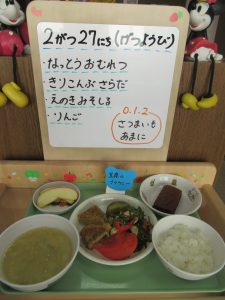 2がつ27にち(げつようび)
・なっとうおむれつ
・きりこんぶさらだ
・えのきみそしる
・りんご
0.1.2
さつまいも
あまに